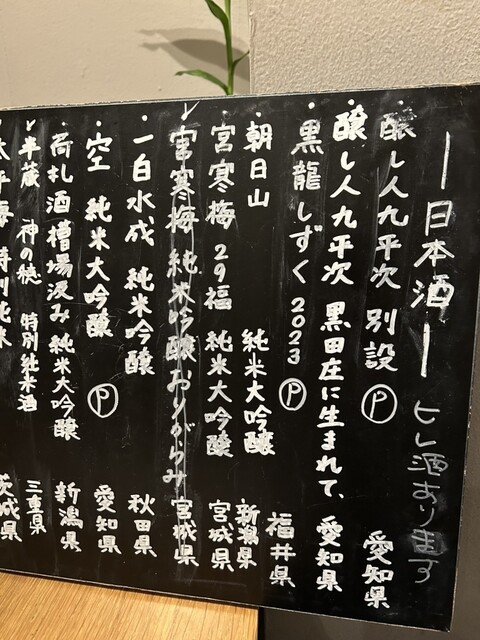 ー日本酒ー ヒレ酒あります
・醸し人九平次 別設 Ⓟ 愛知県
・醸し人九平次 黒田庄に生まれて、 愛知県
・黒龍 しずく 2023 Ⓟ 福井県
・朝日山 純米大吟醸 新潟県
・宮寒梅 29福 純米大吟醸 宮城県
宮寒梅 純米吟醸おりがらみ 宮城県
・一白水成 純米吟醸 秋田県
・空 純米大吟醸 Ⓟ 愛知県
・荷札酒 槽場汲み 純米大吟醸 新潟県
半蔵 神の穂 特別純米酒 三重県
太平海 特別純米 茨城県